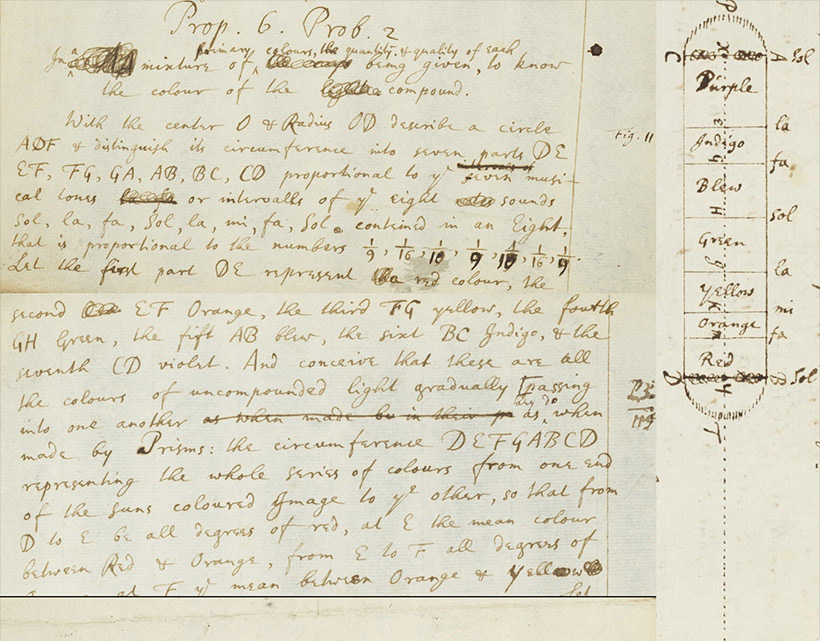 Prop. 6. Prob. 2
In a mixture of primary colours, the quantity & quality of each
being given, to know
the colour of the compound.
With the center O & Radius OD describe a circle
ADF & distinguish its circumference into seven parts DE
EF, FG, GA, AB, BC, CD proportional to ye seven musi-
cal tones or intervalls of ye eight sounds
Sol, la, fa, Sol, la, mi, fa, Sol conteined in an Eight,
that is proportional to the numbers 1/9, 1/16, 1/10, 1/9, 1/10, 1/16, 1/9.
Let the first part DE represent a red colour, the
second EF Orange, the third FG yellow, the fourth
GH Green, the fift AB blew, the sixt BC Indigo, & the
seventh CD violet. And conceive that these are all
the colours of uncompounded light gradually passing
into one another as when made be in their as they do when
made by Prisms: the circumference DEFGABCD
representing the whole series of colours from one end
of the suns coloured Image to ye other, so that from
D to E be all degrees of red, at E the mean colour
between Red & Orange, from E to F all degrees of
at F ye mean between Orange & Yellow
Fig. 11
119
Sol
Purple
la
Indigo
fa
Blew
Sol
Green
la
Yellow
mi
Orange
fa
Red
Sol